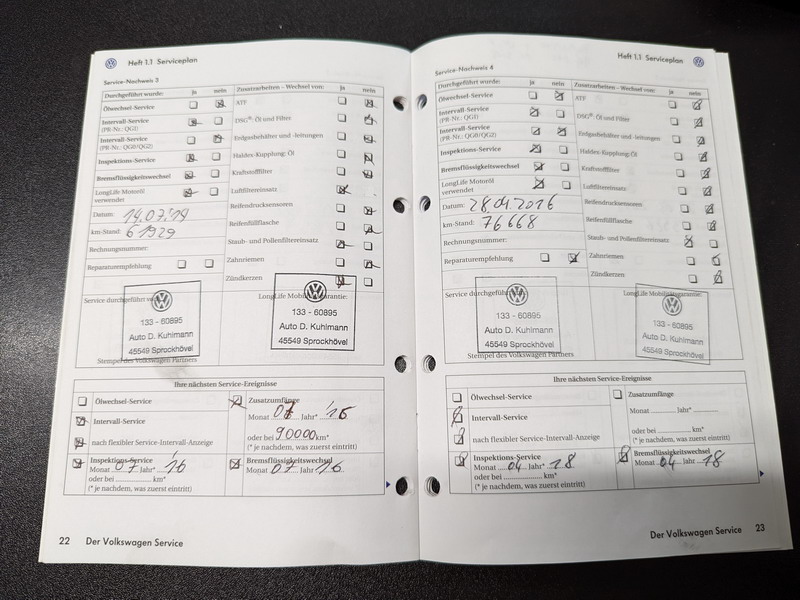 Heft 1.1 Serviceplan
Service-Nachweis 3
Durchgeführt wurde: ja nein
Ölwechsel-Service
Intervall-Service
(PR-Nr.: QG1)
Intervall-Service
(PR-Nr.: QG0/QG2)
Inspektions-Service
Bremsflüssigkeitswechsel
LongLife Motoröl
verwendet
Datum: 14.07.'14
km-Stand: 61929
Rechnungsnummer:
Reparaturempfehlung
Zusatzarbeiten - Wechsel von: ja nein
ATF
DSG®: Öl und Filter
Erdgasbehälter und -leitungen
Haldex-Kupplung: Öl
Kraftstofffilter
Luftfiltereinsatz
Reifendrucksensoren
Reifenfüllflasche
Staub- und Pollenfiltereinsatz
Zahnriemen
Zündkerzen
Service durchgeführt
133 - 60895
Auto D. Kuhlmann
45549 Sprockhövel
LongLife Mobilitätsgarantie:
133 - 60895
Auto D. Kuhlmann
45549 Sprockhövel
Stempel des Volkswagen Partners
Ihre nächsten Service-Ereignisse
Ölwechsel-Service
Intervall-Service
nach flexibler Service-Intervall-Anzeige
Inspektions-Service
Monat 07 Jahr* '16
oder bei km*
(* je nachdem, was zuerst eintritt)
Zusatzumfänge
Monat 07 Jahr* '16
oder bei 90000 km*
(* je nachdem, was zuerst eintritt)
Bremsflüssigkeitswechsel
Monat 07 Jahr 16
22 Der Volkswagen Service
Heft 1.1 Serviceplan
Service-Nachweis 4
Durchgeführt wurde: ja nein
Ölwechsel-Service
Intervall-Service
(PR-Nr.: QG1)
Intervall-Service
(PR-Nr.: QG0/QG2)
Inspektions-Service
Bremsflüssigkeitswechsel
LongLife Motoröl
verwendet
Datum: 28.04.2016
km-Stand: 76668
Rechnungsnummer:
Reparaturempfehlung
Zusatzarbeiten - Wechsel von: ja nein
ATF
DSG®: Öl und Filter
Erdgasbehälter und -leitungen
Haldex-Kupplung: Öl
Kraftstofffilter
Luftfiltereinsatz
Reifendrucksensoren
Reifenfüllflasche
Staub- und Pollenfiltereinsatz
Zahnriemen
Zündkerzen
Service durchgeführt
133 - 60895
Auto D. Kuhlmann
45549 Sprockhövel
LongLife Mobilitätsgarantie:
133 - 60895
Auto D. Kuhlmann
45549 Sprockhövel
Stempel des Volkswagen Partners
Ihre nächsten Service-Ereignisse
Ölwechsel-Service
Intervall-Service
nach flexibler Service-Intervall-Anzeige
Inspektions-Service
Monat 04 Jahr* 18
oder bei km*
(* je nachdem, was zuerst eintritt)
Zusatzumfänge
Monat Jahr*
oder bei km*
(* je nachdem, was zuerst eintritt)
Bremsflüssigkeitswechsel
Monat 04 Jahr 18
Der Volkswagen Service 23